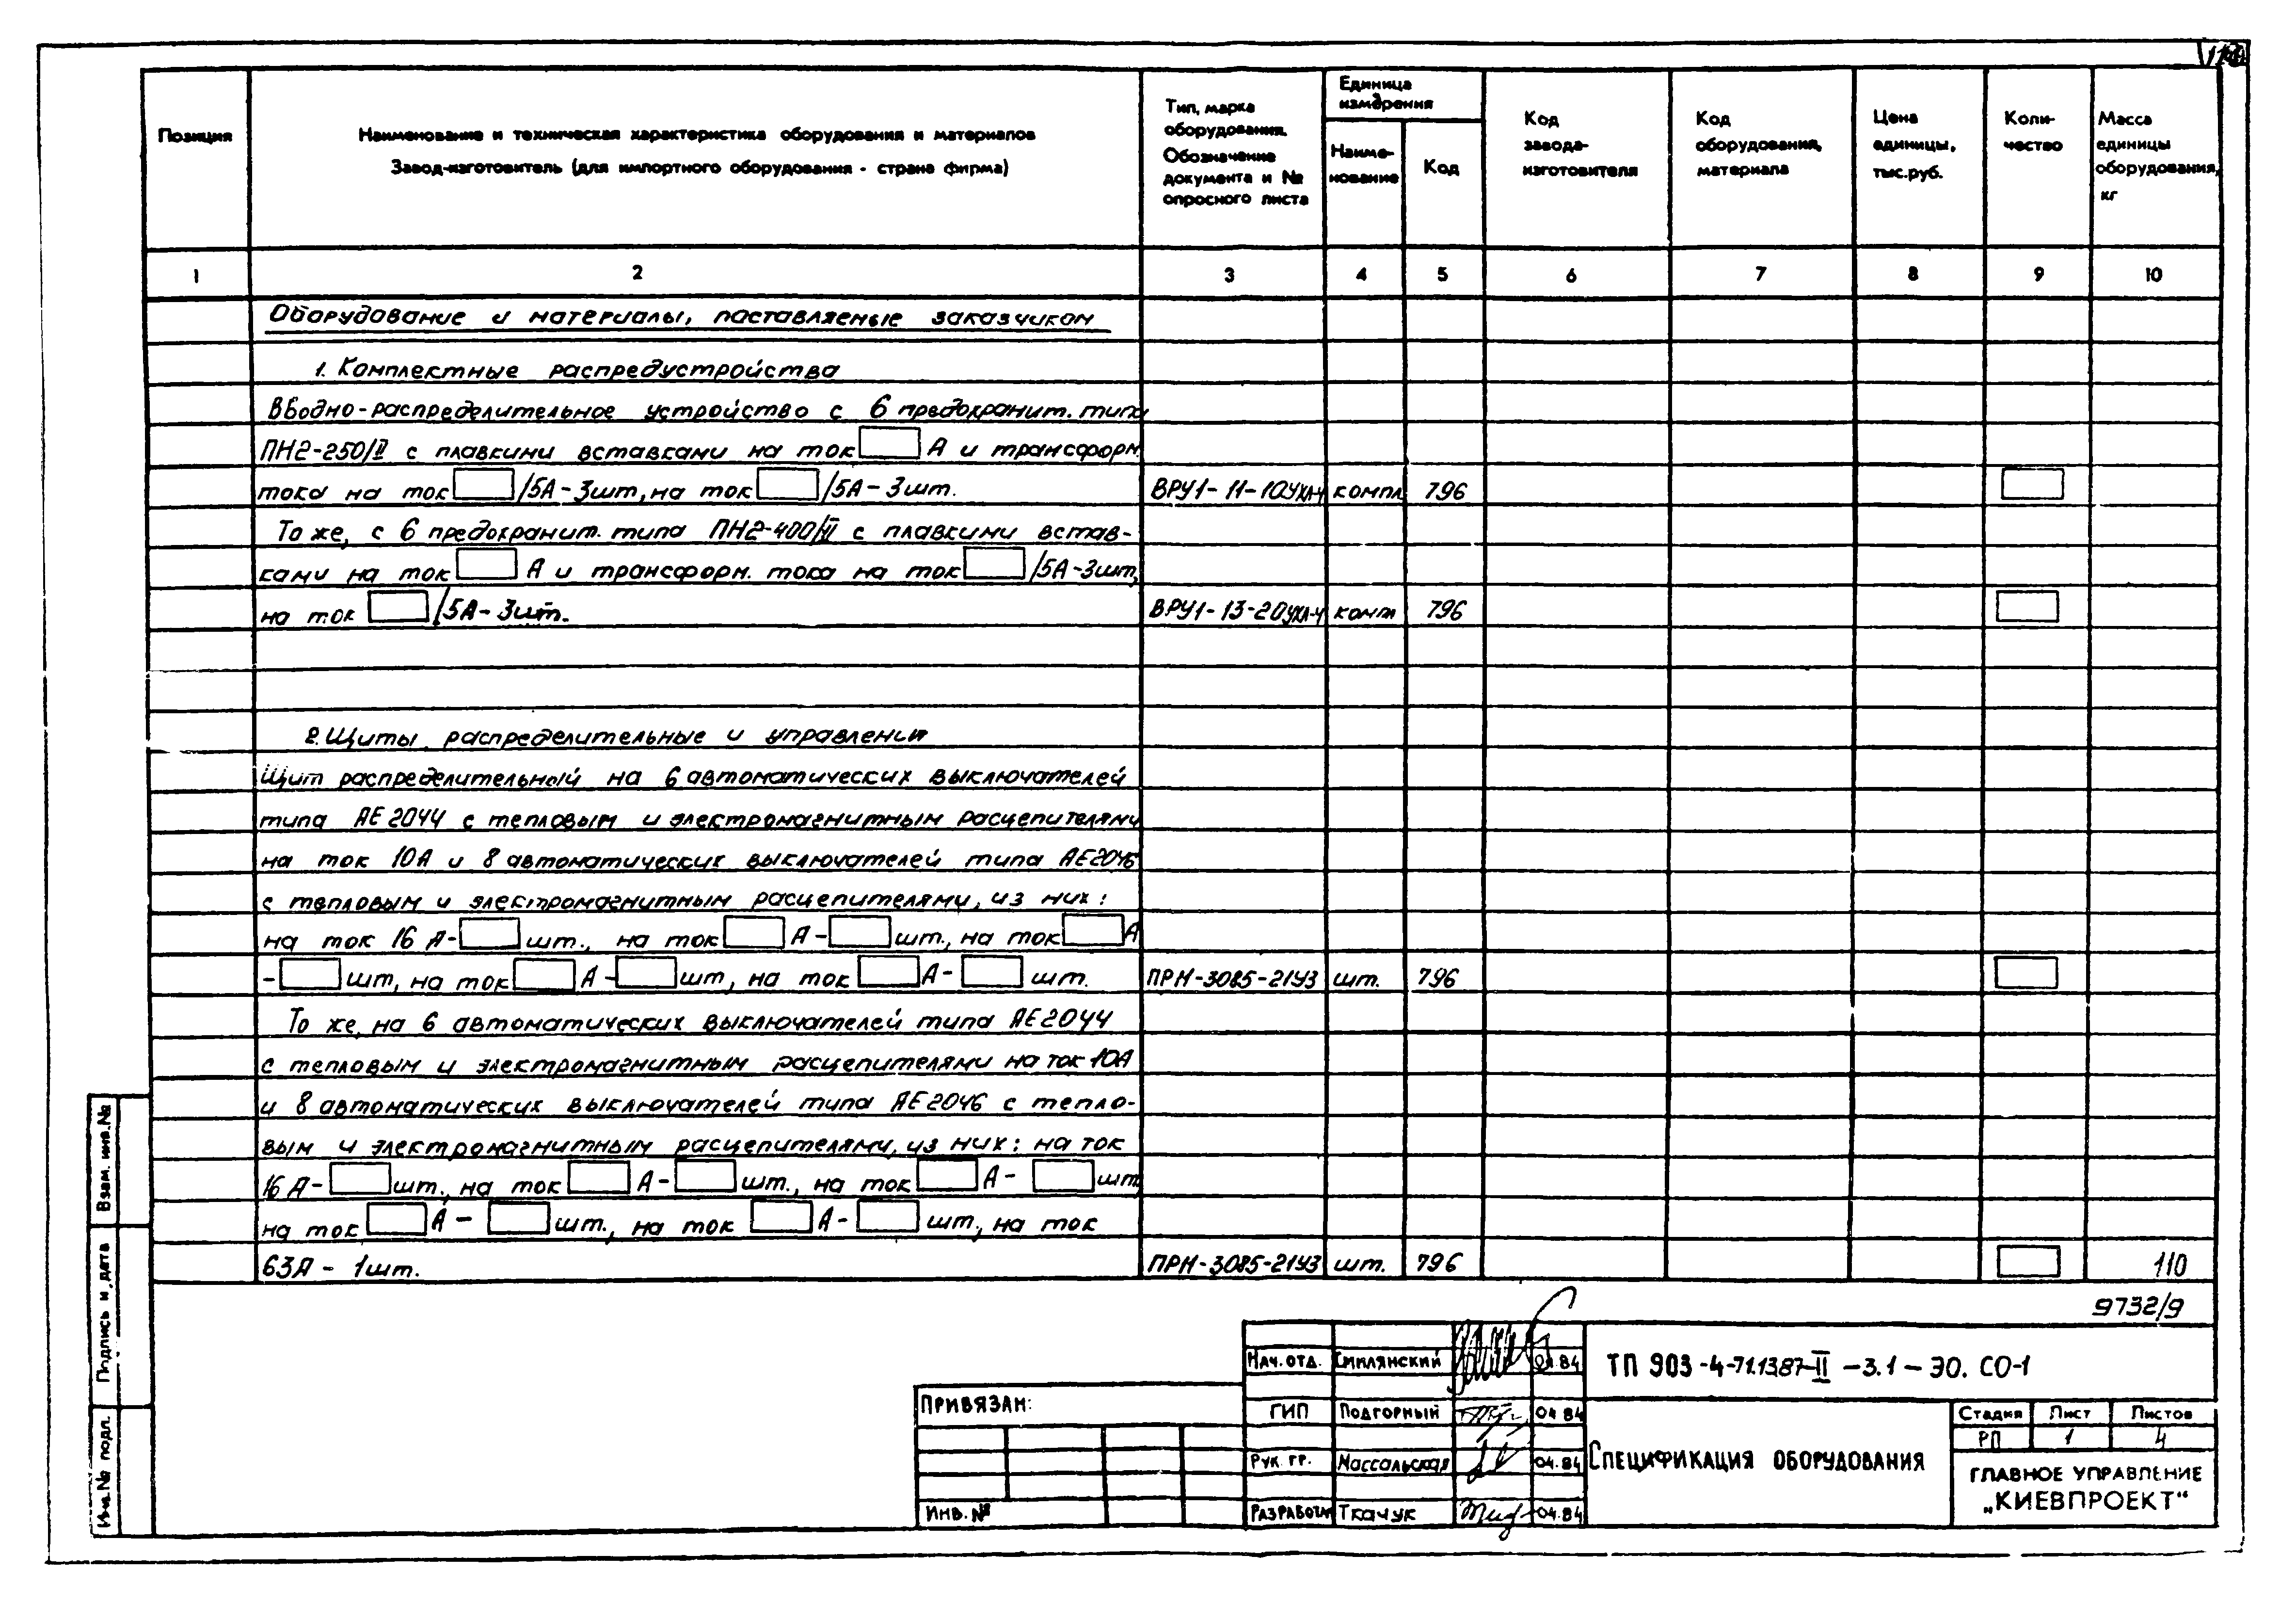 Позиция
Наименование и техническая характеристика оборудования и материалов
Завод-изготовитель (для импортного оборудования - страна фирма)
Тип, марка
оборудования.
Обозначение
документа и №
опросного листа
Единица
измерения
Наиме-
нование
Код
Код
завода-
изготовителя
Код
оборудования,
материала
Цена
единицы,
тыс.руб.
Коли-
чество
Масса
единицы
оборудования,
кг
1 2 3 4 5 6 7 8 9 10
Оборудование и материалы, поставляемые заказчиком
1. Комплектные распредустройства
Вводно-распределительное устройство с 6 предохранит. типа
ПН2-250/II с плавкими вставками на ток А и трансформ.
тока на ток /5А-3шт, на ток /5А-3шт. ВРУ1-11-10УХЛ4 компл 796
То же, с 6 предохранит. типа ПН2-400/II с плавкими встав-
ками на ток А и трансформ. тока на ток /5А-3шт,
на ток /5А-3шт. ВРУ1-13-20УХЛ4 компл 796
2. Щиты распределительные и управления
Щит распределительный на 6 автоматических выключателей
типа АЕ2044 с тепловым и электромагнитным расцепителями
на ток 10А и 8 автоматических выключателей типа АЕ2046
с тепловым и электромагнитным расцепителями, из них:
на ток 16 А- шт., на ток А- шт., на ток А
- шт, на ток А- шт, на ток А- шт. ПРН-3085-21У3 шт. 796
То же, на 6 автоматических выключателей типа АЕ2044
с тепловым и электромагнитным расцепителями на ток 10А
и 8 автоматических выключателей типа АЕ2046 с тепло-
вым и электромагнитным расцепителями, из них: на ток
16 А- шт., на ток А- шт., на ток А- шт
на ток А- шт., на ток А- шт, на ток
63А - 1шт. ПРН-3085-21У3 шт. 796 110
9732/9
Взам. инв.№
Подпись и дата
Инв.№ подл.
ПРИВЯЗАН:
ИНВ. №
Нач. отд. Смилянский
ГИП Подгорный 04.84
Рук. гр. Массальская 04.84
Разработал Ткачук 04.84
ТП 903-4-71.1387-II -3.1-ЭО. СО-1
Спецификация оборудования
Стадия Лист Листов
РП 1 4
ГЛАВНОЕ УПРАВЛЕНИЕ
„КИЕВПРОЕКТ“